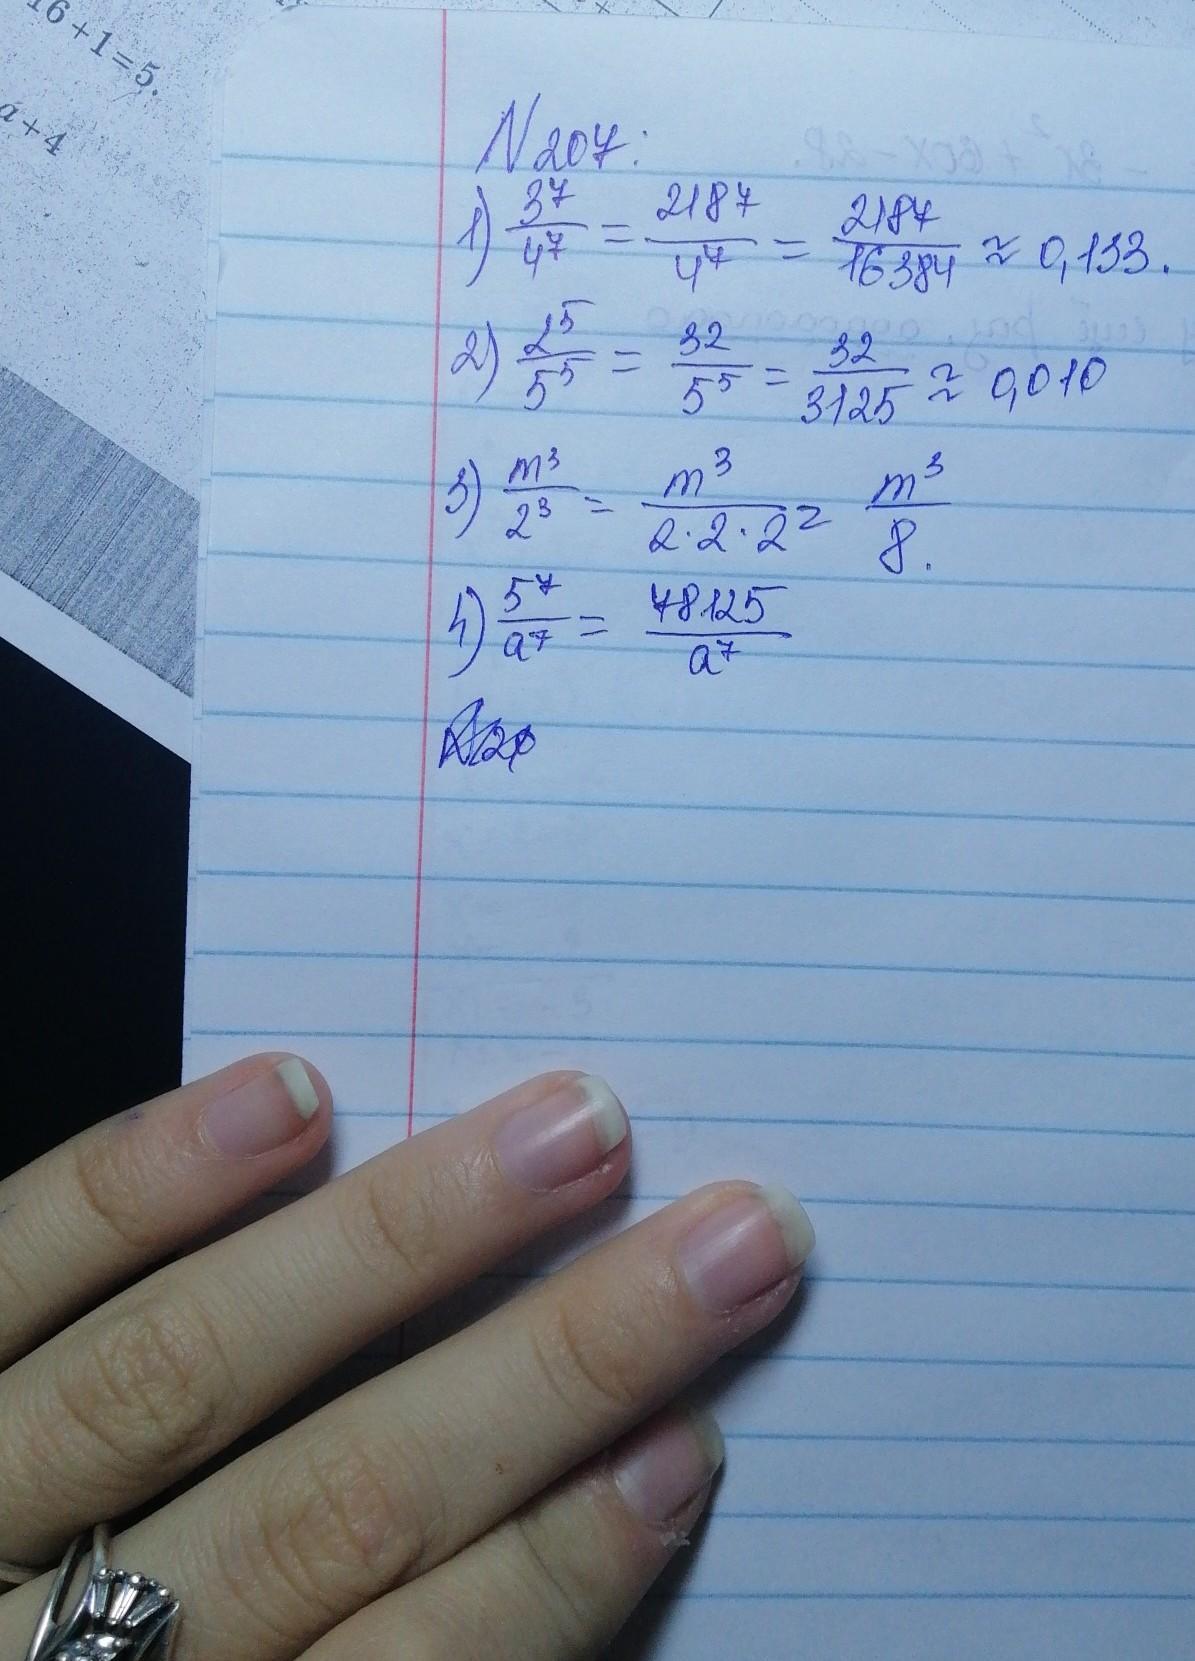 16+1=5.
a+4
N207:
1) 3^7/4^7 = 2187/4^7 = 2187/16384 ≈ 0,133.
2) 2^5/5^5 = 32/5^5 = 32/3125 ≈ 0,010
3) m^3/2^3 = m^3/2·2·2 = m^3/8.
4) 5^7/a^7 = 78125/a^7